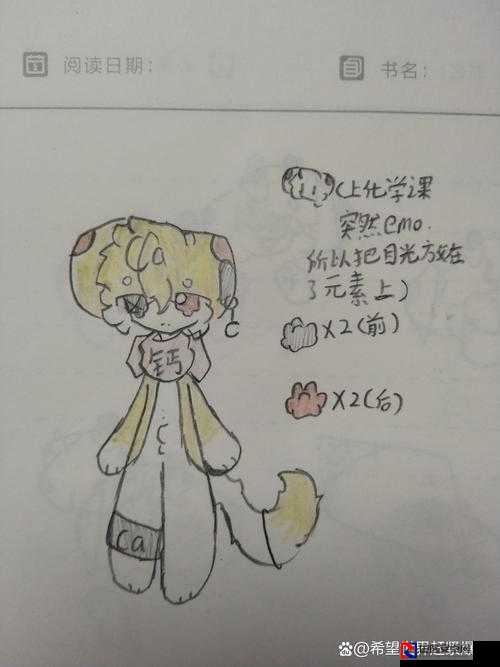 阅读日期：
书名：
（上化学课
突然emo.
所以把目光放在
了元素上）
X2（前）
X2（后）
Ca
钙
C
Ca
@希望